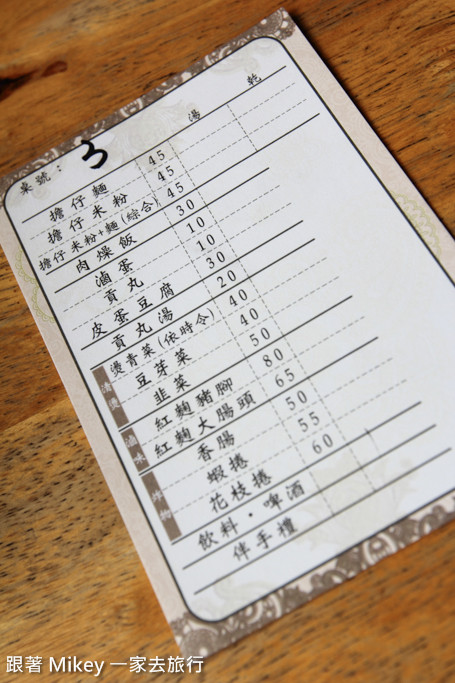 桌號：3
湯 乾
擔仔麵 45
擔仔米粉 45
擔仔米粉+麵(綜合) 45
肉燥飯 30
滷蛋 10
貢丸 10
皮蛋豆腐 30
貢丸湯 20
清燙
燙青菜(依時令) 40
豆芽菜 40
韭菜 50
滷味
紅麴豬腳 80
紅麴大腸頭 65
炸物
香腸 50
蝦捲 55
花枝捲 60
飲料・啤酒
伴手禮
跟著 Mikey 一家去旅行